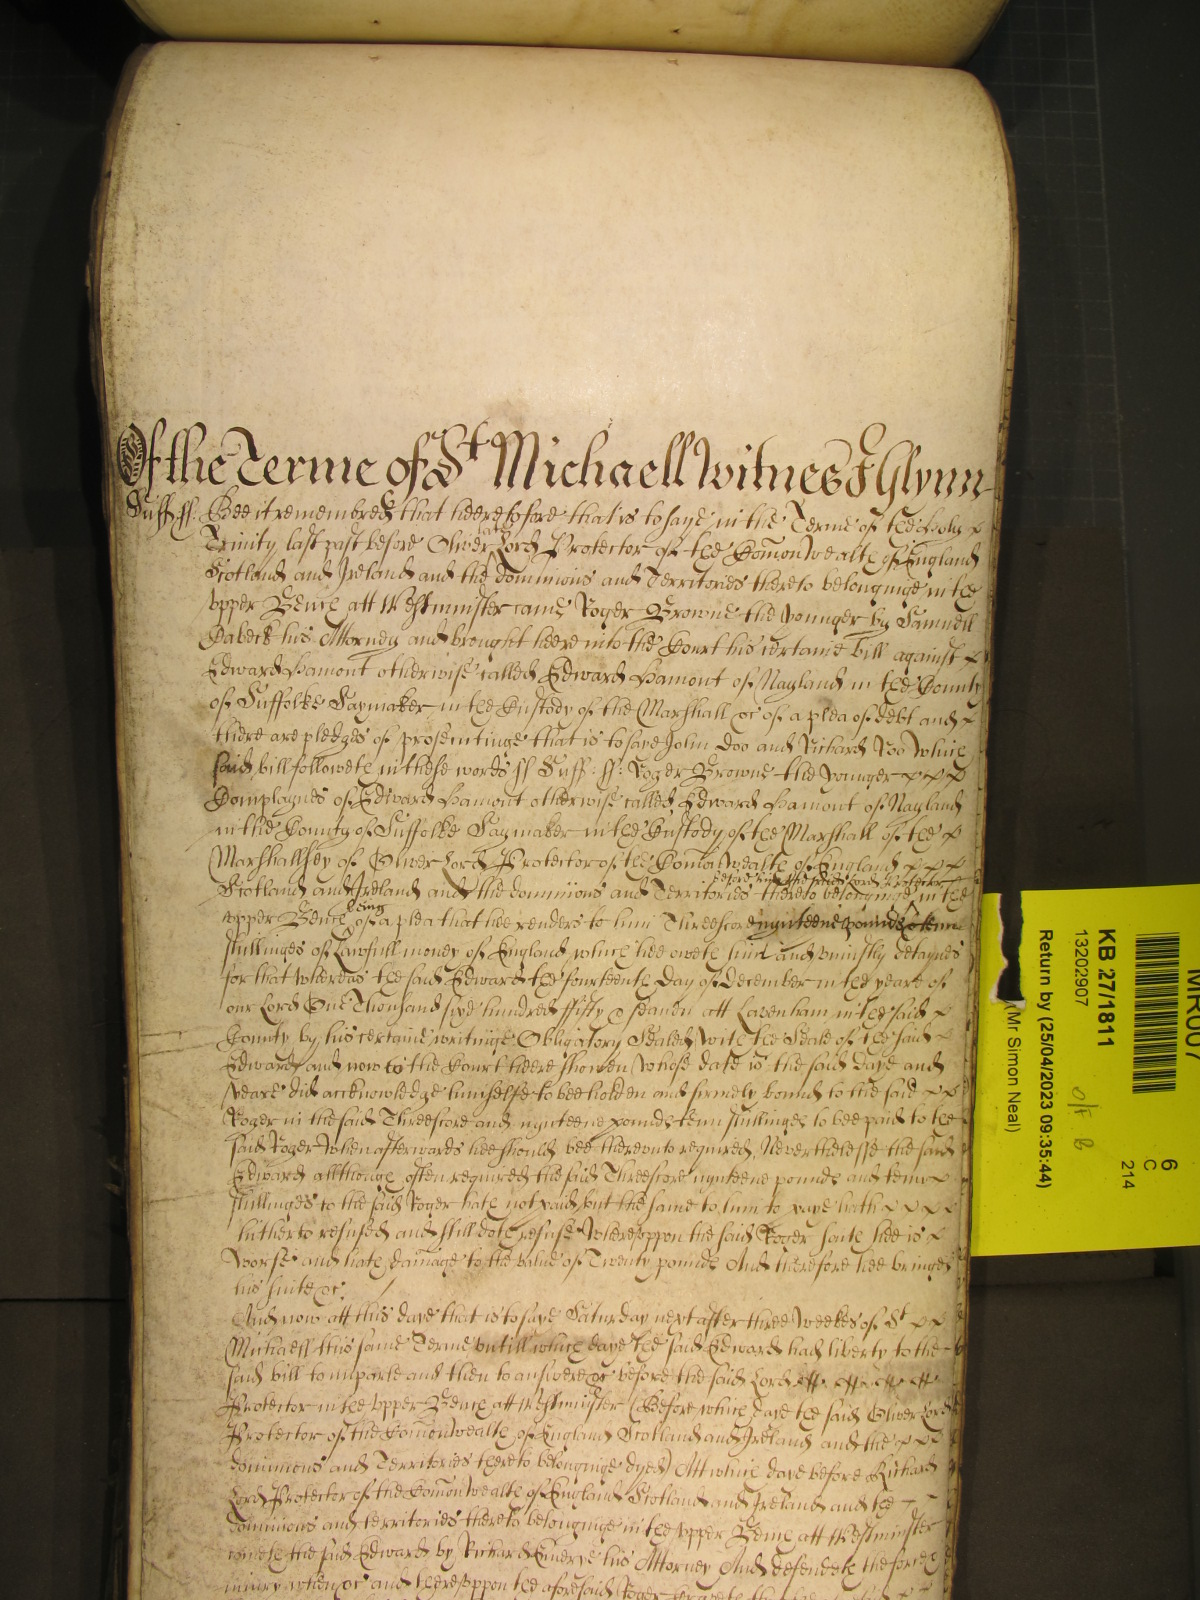 Of the Terme of St Michaell Witnes J Glynn
Suff: ss: Bee it remembred that heeretofore that is to saye in the Terme of the Holy
Trinity last past before Oliver late Lord Protector of the Comon Wealth of England
Scotland and Ireland and the dominions and Territories thereto belonginge in the
upper Bench att Westminster came Roger Browne the younger by Samuell
his Attorney and brought heere into the Court his certaine bill against
Edward Hamont otherwise called Edward Hamont of Nayland in the County
of Suffolke Saymaker in the Custody of the Marshall &c of a plea of debt and
there are pledges of prosecutinge that is to saye John Doo and Richard Roo Which
said bill followeth in these words ss Suff: ss: Roger Browne the younger
Complaynes of Edward Hamont otherwise called Edward Hamont of Nayland
in the County of Suffolke Saymaker in the Custody of the Marshall of the
Marshallsey of Oliver Lord Protector of the Comon Wealth of England
Scotland and Ireland and the dominions and Territories thereto belonginge before him the said Lord Protector in the
upper Bench being of a plea that hee renders to him Threescore nynteene pounds & tenn
shillinges of Lawfull money of England which hee oweth him and uniustly detaynes
for that whereas the said Edward the fourteenth day of December in the yeare of
our Lord One Thousand six hundred fifty & seaven att Lavenham in the said
County by his certaine writinge Obligatory Sealed with the Seale of the said
Edward and now to the Court heere showen whose date is the said daye and
yeare did acknowledge himselfe to bee holden and firmely bound to the said
Roger in the said Threescore and nynteene pounds tenn shillinges to bee paid to the
said Roger when afterwards hee should bee thereunto required, Neverthelesse the said
Edward allthough often required the said Threescore nynteene pounds and tenn
shillinges to the said Roger hath not paid but the same to him to paye hath
hitherto refused and still doth refuse Whereuppon the said Roger saith hee is
Worse and hath damage to the value of Twenty pounds And therefore hee bringes
his suite &c:
And now att this daye that is to saye Saturday next after three Weekes of St
Michaell this same Terme untill which daye the said Edward had liberty to the
said bill to imparle and then to answere &c before the said Lord
Protector in the upper Bench att Westminster (Before which daye the said Oliver Lord
Protector of the Comon Wealth of England Scotland and Ireland and the
dominions and Territories thereto belonginge dyed) Att which daye before Richard
Lord Protector of the Comon Wealth of England Scotland and Ireland and the
dominions and territories thereto belonginge in the upper Bench att Westminster
cometh the said Edward by Richard Emerye his Attorney And defendeth the force &
iniury when &c and thereuppon the aforesaid Roger
MR007
6
C
214
KB 27/1811
13202907
Return by (25/04/2023 09:35:44)
(Mr Simon Neal)